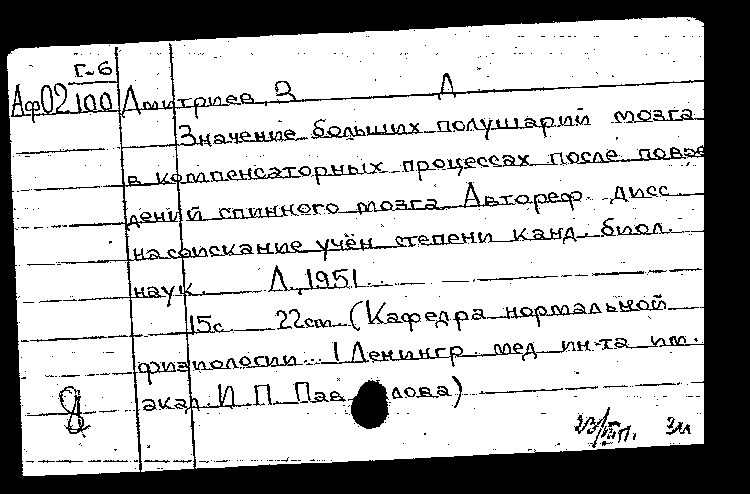 Г-6
Аф02100 Дмитриев, В Д
Значение больших полушарий мозга
в компенсаторных процессах после повре
дений спинного мозга Автореф. дисс
на соискание учён. степени канд. биол.
наук. Л, 1951
15с 22см (Кафедра нормальной
физиологии... I Ленингр. мед ин-та им.
акад. И. П. Павлова)